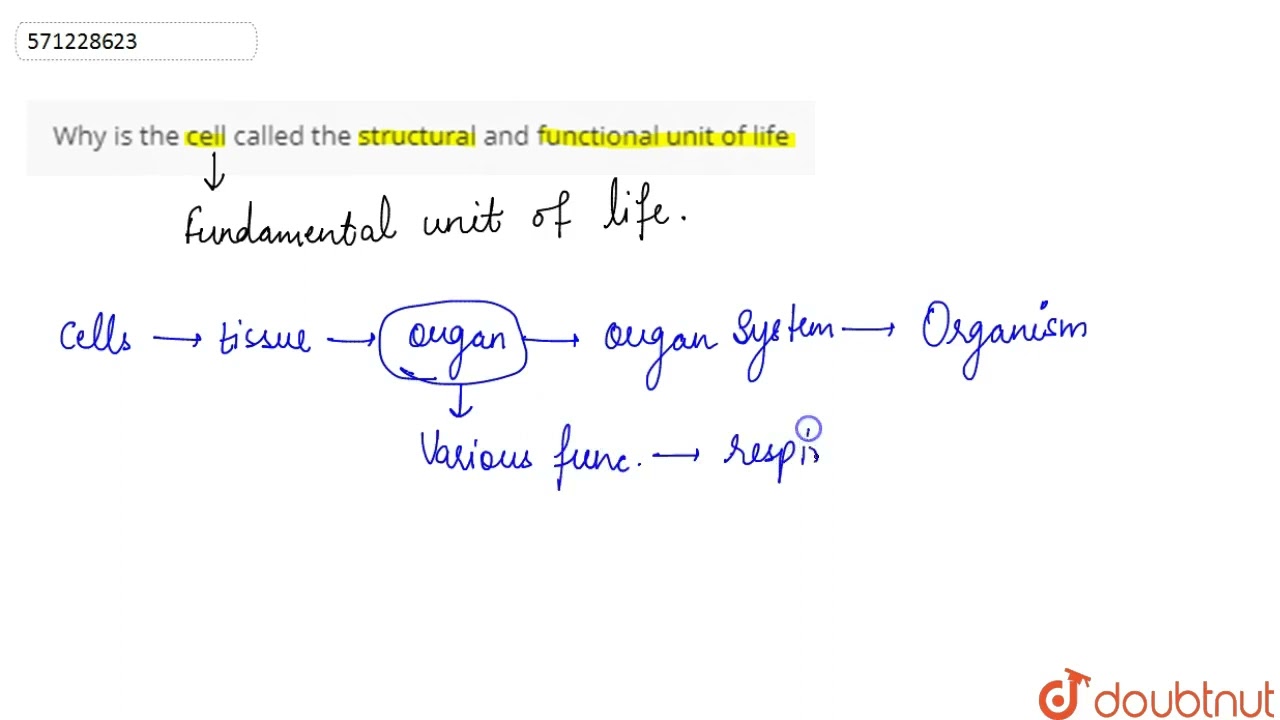 571228623
Why is the cell called the structural and functional unit of life
↓
Fundamental unit of life.
Cells → tissue → organ → organ system → Organism
↓
Various func. → respir
doubtnut